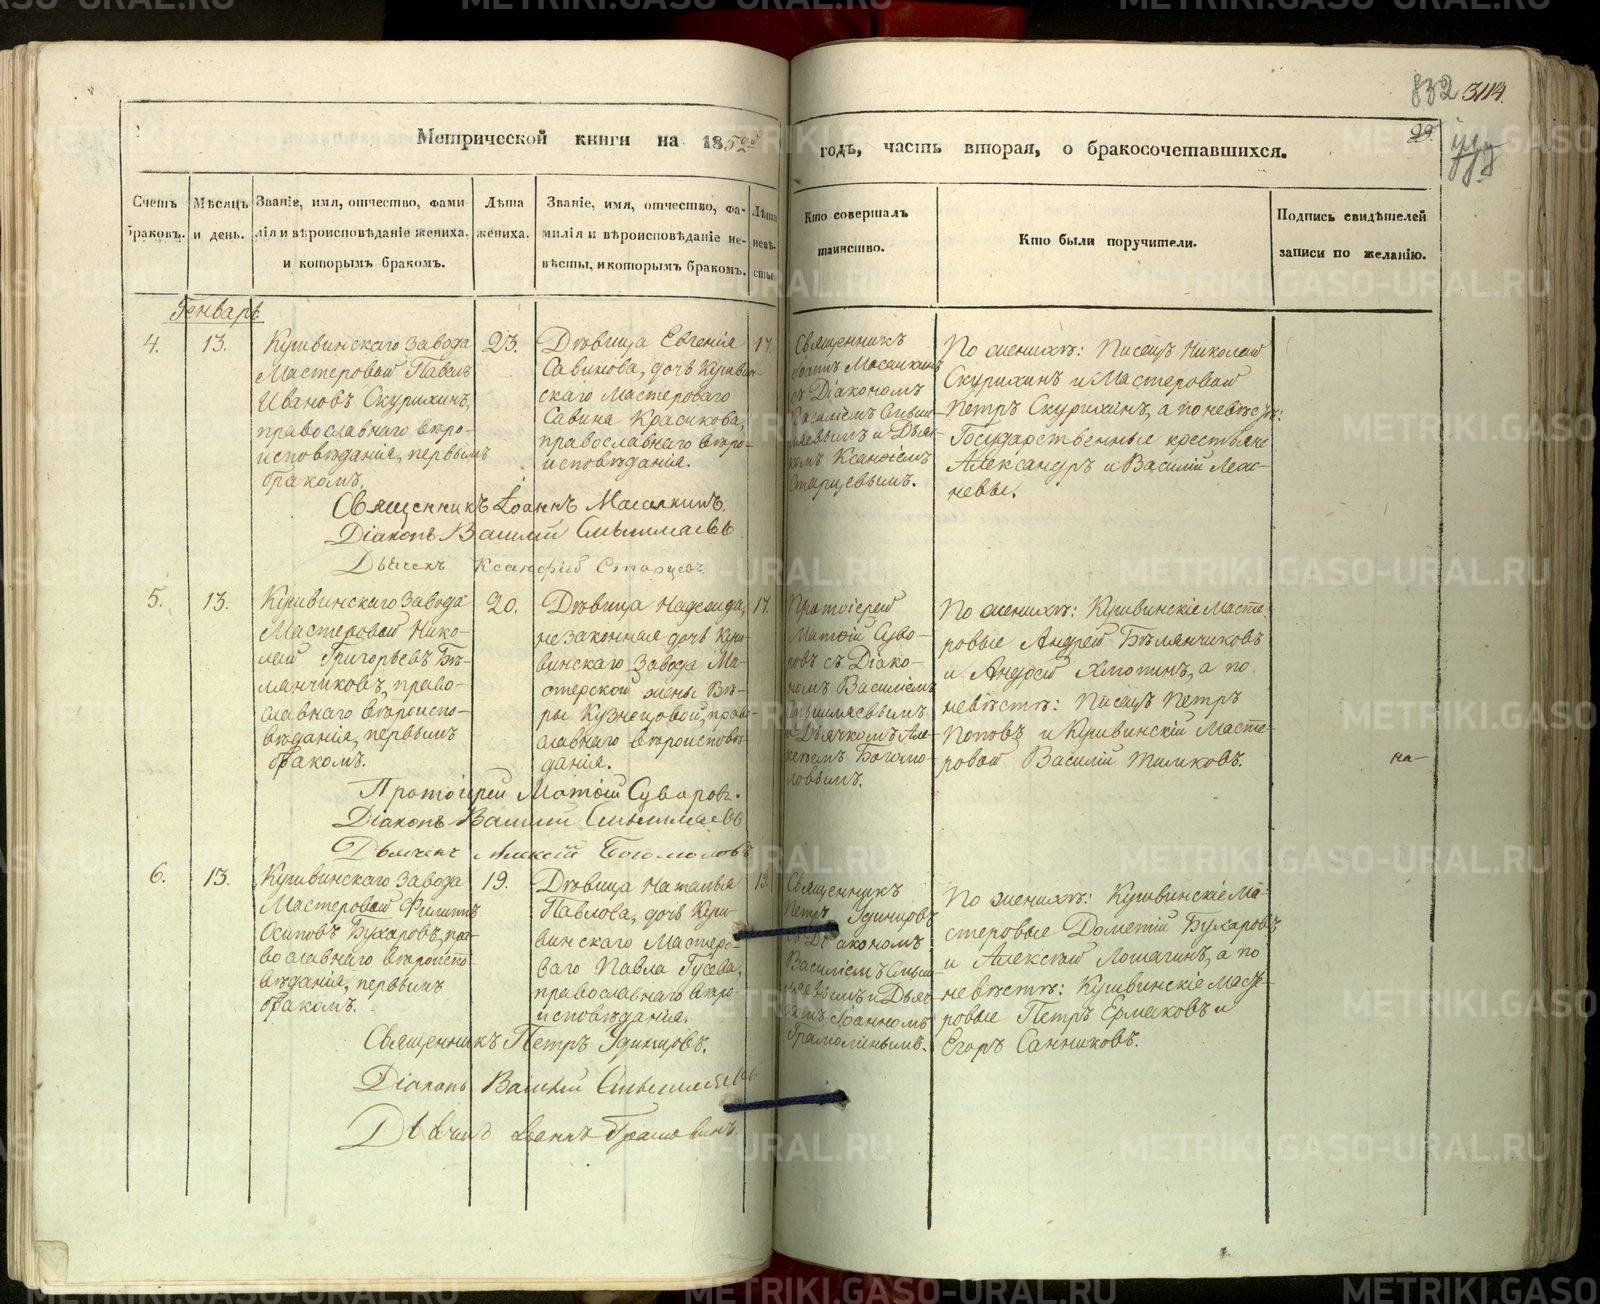 832 3114.
29.
Метрической книги на 1852й
годъ, часть вторая, о бракосочетавшихся.
Счетъ браковъ.
Мѣсяцъ и день.
Званіе, имя, отчество, фами-
лія и вѣроисповѣданіе жениха,
и которымъ бракомъ.
Лѣта
жениха.
Званіе, имя, отчество, фа-
милія и вѣроисповѣданіе не-
вѣсты, и которымъ бракомъ.
Лѣта
невѣ-
сты
Кто совершалъ
таинство.
Кто были поручители.
Подпись свидѣтелей
записи по желанію.
Генварь
4.
13.
Кушвинскаго Завода
Мастеровой Павелъ
Ивановъ Скурихинъ,
православнаго вѣро-
исповѣданія, первымъ
бракомъ.
23.
Дѣвица Евгенія
Савинова, дочь Кушвин-
скаго Мастероваго
Савина Красикова,
православнаго вѣро-
исповѣданія.
17.
Священникъ
Іоаннъ Масалкинъ
съ Діакономъ
Василіемъ Смыш-
ляевымъ и Дьяч-
комъ Ксанфіемъ
Старцевымъ.
По женихѣ: Писецъ Николай
Скурихинъ и Мастеровой
Петръ Скурихинъ, а по невѣстѣ:
Государственные крестьяне
Александръ и Василій
невы.
Священникъ Іоаннъ Масалкинъ.
Діаконъ Василій Смышляевъ
Дьячекъ Ксанфій Старцевъ
5.
13.
Кушвинскаго Завода
Мастеровой Нико-
лай Григорьевъ Бѣ-
лянчиковъ, право-
славнаго вѣроиспо-
вѣданія, первымъ
бракомъ.
20.
Дѣвица Надежда,
незаконная дочь Куш-
винскаго Завода Ма-
стерской жены Вѣ-
ры Кузнецовой, право-
славнаго вѣроисповѣ-
данія.
17.
Протоіерей
Матѳій Суво-
ровъ съ Діако-
номъ Василіемъ
Смышляевымъ
и Дьячкомъ Але-
ксѣемъ Богомо-
ловымъ.
По женихѣ: Кушвинскіе Масте-
ровые Андрей Бѣлянчиковъ
и Андрей Хлопинъ, а по
невѣстѣ: Писецъ Петръ
Поповъ и Кушвинскій Масте-
ровой Василій Шиликовъ.
на-
Протоіерей Матѳій Суворовъ.
Діаконъ Василій Смышляевъ
Дьячекъ Алексій Богомоловъ
6.
13.
Кушвинскаго Завода
Мастеровой Филиппъ
Осиповъ Бухаровъ, пра-
вославнаго вѣроиспо-
вѣданія, первымъ
бракомъ.
19.
Дѣвица Наталья
Павлова, дочь Куш-
винскаго Мастеро-
ваго Павла Гусева,
православнаго вѣро-
исповѣданія.
19.
Священникъ
Петръ Удинцовъ
съ Діакономъ
Василіемъ Смыш-
ляевымъ и Дьяч-
комъ Іоанномъ
Грамолинымъ.
По женихѣ: Кушвинскіе Ма-
стеровые Дометій Бухаровъ
и Алексѣй Лошагинъ, а по
невѣстѣ: Кушвинскіе Масте-
ровые Петръ Ермаковъ и
Егоръ Санниковъ.
Священникъ Петръ Удинцовъ.
Діаконъ Василій Смышляевъ
Дьячекъ Іоаннъ Грамолинъ.
METRIKI.GASO-URAL.RU